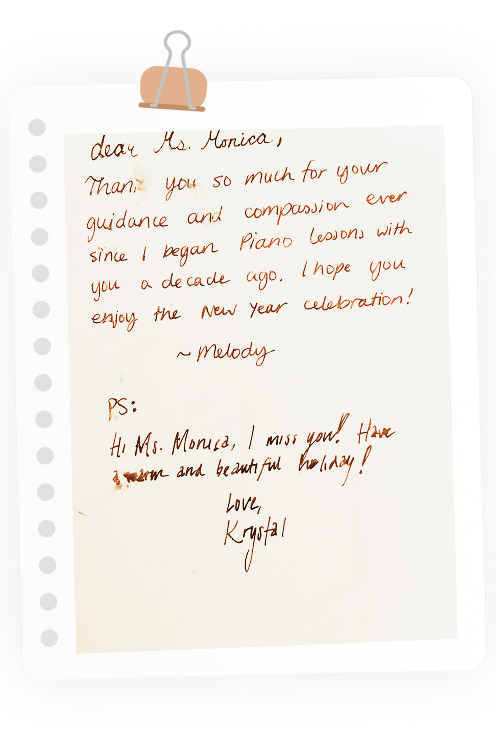 dear Ms. Monica,
Thank you so much for your
guidance and compassion ever
since I began Piano lessons with
you a decade ago. I hope you
enjoy the New Year celebration!
~ Melody
PS:
Hi Ms. Monica, I miss you! Have
a warm and beautiful holiday!
Love,
Krystal